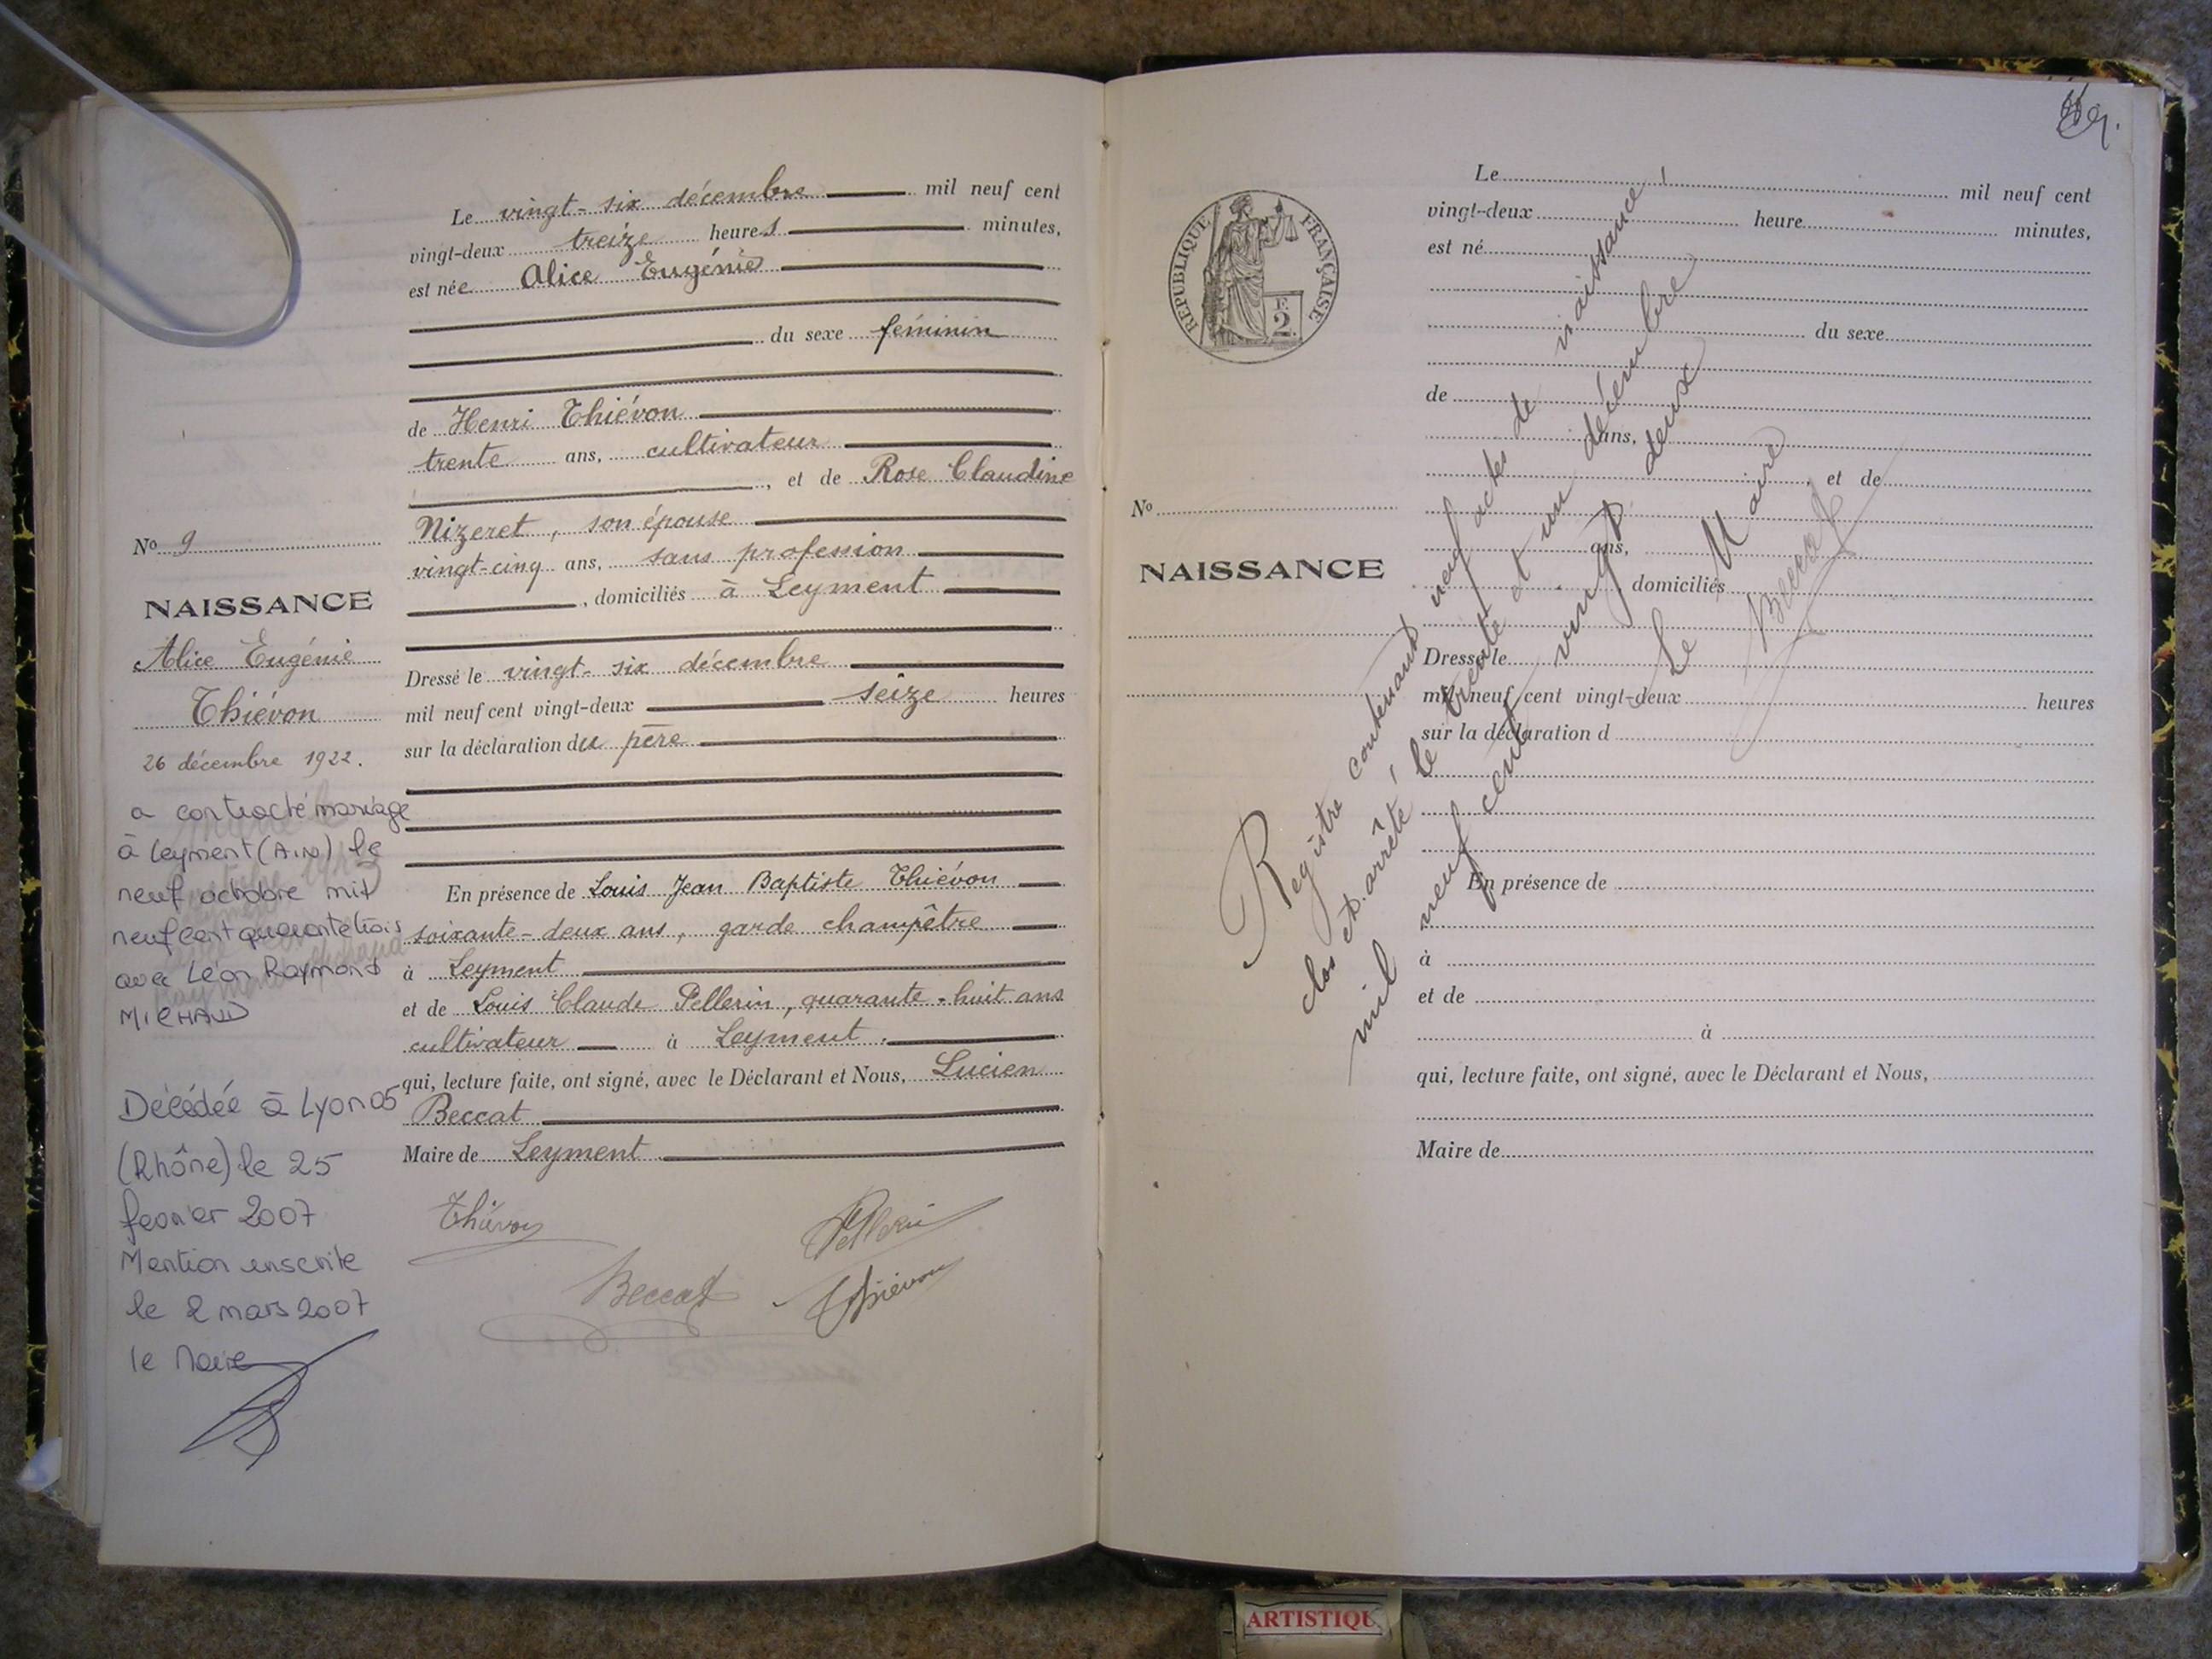 Le vingt-six décembre mil neuf cent
vingt-deux treize heures minutes,
est née Alice Eugénie
du sexe féminin
de Henri Thiévon
trente ans, cultivateur
, et de Rose Claudine
Nizeret, son épouse
vingt-cinq ans, sans profession
, domiciliés à Leyment
Dressé le vingt-six décembre
mil neuf cent vingt-deux seize heures
sur la déclaration du père
En présence de Louis Jean Baptiste Thiévon
soixante-deux ans, garde champêtre
à Leyment
et de Louis Claude Pellerin, quarante-huit ans
cultivateur à Leyment.
qui, lecture faite, ont signé, avec le Déclarant et Nous, Lucien
Beccat
Maire de Leyment
Thiévon
Pellerin
Beccat
Thiévon
No 9
NAISSANCE
Alice Eugénie
Thiévon
26 décembre 1922.
a contracté mariage
à Leyment (AIN) le
neuf octobre mil
neuf cent quarante trois
avec Léon Raymond
MICHAUD
Décédée à Lyon 05
(Rhône) le 25
février 2007
Mention inscrite
le 2 mars 2007
le Maire
RÉPUBLIQUE FRANÇAISE
F.
2
No
NAISSANCE
Le mil neuf cent
vingt-deux heure minutes,
est né
du sexe
de
ans,
, et de
ans,
domiciliés
Dressé le
mil neuf cent vingt-deux heures
sur la déclaration d
En présence de
à
et de
à
qui, lecture faite, ont signé, avec le Déclarant et Nous,
Maire de
Registre contenant neuf actes de naissance,
clos et arrêté, le trente et un décembre
mil neuf cent vingt deux
Le Maire
Beccat
ARTISTIQU